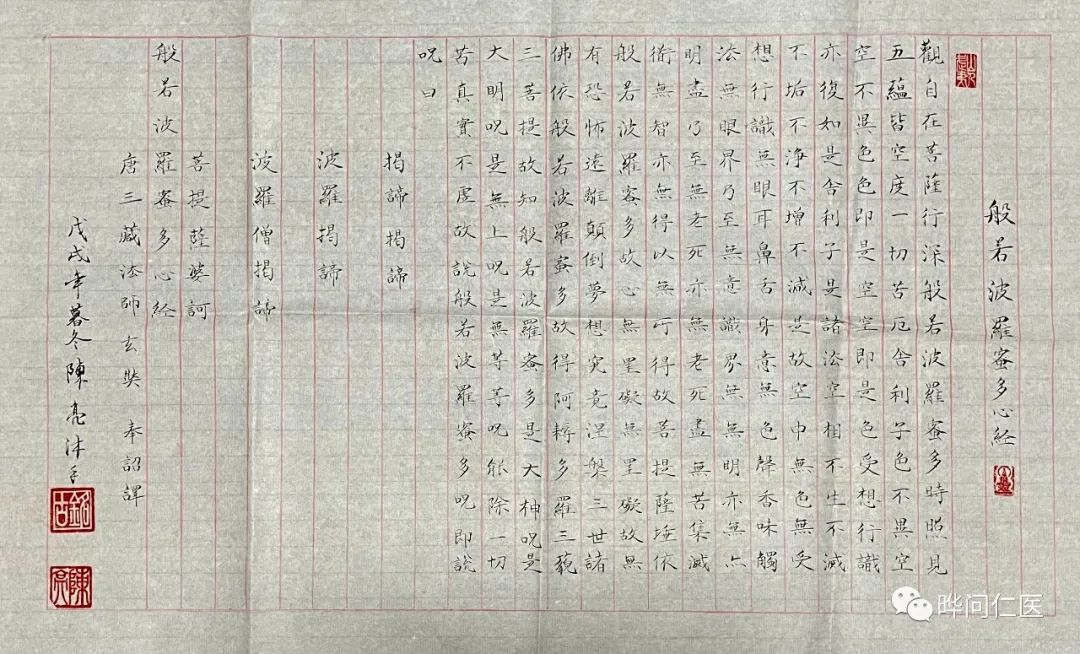 般若波羅蜜多心經
觀自在菩薩行深般若波羅蜜多時照見
五蘊皆空度一切苦厄舍利子色不異空
空不異色色即是空空即是色受想行識
亦復如是舍利子是諸法空相不生不滅
不垢不淨不增不減是故空中無色無受
想行識無眼耳鼻舌身意無色聲香味觸
法無眼界乃至無意識界無無明亦無無
明盡乃至無老死亦無老死盡無苦集滅
衜無智亦無得以無所得故菩提薩埵依
般若波羅蜜多故心無罣礙無罣礙故無
有恐怖遠離顛倒夢想究竟涅槃三世諸
佛依般若波羅蜜多故得阿耨多羅三藐
三菩提故知般若波羅蜜多是大神呪是
大明呪是無上呪是無等等呪能除一切
苦真實不虛故說般若波羅蜜多呪即說
呪曰
揭諦揭諦
波羅揭諦
波羅僧揭諦
菩提薩婆訶
般若波羅蜜多心經
唐三藏法師玄奘 奉詔譯
戊戌年暮冬陳亮沐手
陳亮
晔问仁医